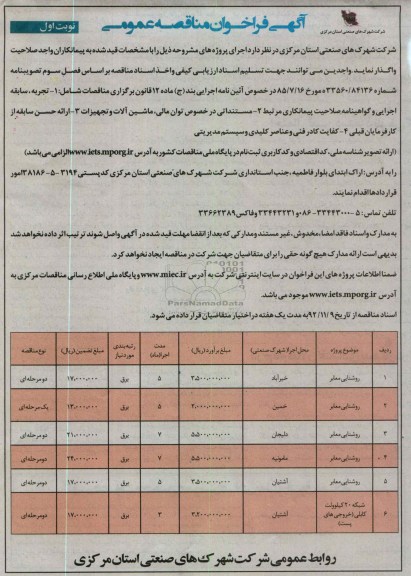 آگهی فراخوان مناقصه عمومی
نوبت اول
شرکت شهرک های صنعتی استان مرکزی
شرکت شهرک های صنعتی استان مرکزی در نظر دارد اجرای پروژه های مشروحه ذیل را با مشخصات قید شده به پیمانکاران واجد صلاحیت
واگذار نماید. واجدین می توانند جهت تسلیم اسناد ارزیابی کیفی و اخذ اسناد مناقصه بر اساس فصل سوم تصویبنامه
شماره ۸۴۱۳۶/ت۳۳۵۶۰ه مورخ ۸۵/۷/۱۶ در خصوص آئین نامه اجرایی بند (ج) ماده ۱۲ قانون برگزاری مناقصات شامل: ۱- تجربه ، سابقه
اجرایی و گواهینامه صلاحیت پیمانکاری مرتبط ۲- مستنداتی در خصوص توان مالی، ماشین آلات و تجهیزات ۳- ارائه حسن سابقه از
کارفرمایان قبلی ۴- کفایت کادر فنی و عناصر کلیدی و سیستم مدیریتی
(ارائه تصویر شناسه ملی، کد اقتصادی و کد کاربری ثبت نام در پایگاه ملی مناقصات کشور به آدرس www.iets.mporg.ir الزامی می باشد)
را به آدرس: اراک ابتدای بلوار فاطمیه ، جنب استانداری شرکت شهرک های صنعتی استان مرکزی کدپستی ۳۱۹۴-۵-۳۸۱۸۶ امور
قراردادها اقدام نمایند.
تلفن تماس: ۵-۳۳۴۴۳۰۰۰-۰۸۶ و ۳۳۴۴۳۲۳۱ و فاکس ۳۳۶۶۲۳۸۹
به مدارک و اسناد فاقد امضاء، مخدوش، غیر مستند و مدارکی که بعد از انقضا مهلت قید شده در آگهی واصل شوند ترتیب اثر داده نخواهد شد.
بدیهی است ارائه مدارک هیچ گونه حقی را برای متقاضیان جهت شرکت در مناقصه ایجاد نخواهد کرد.
ضمنا اطلاعات پروژه های این فراخوان در سایت اینترنتی شرکت به آدرس www.miec.ir و پایگاه ملی اطلاع رسانی مناقصات مرکزی به
آدرس www.iets.mporg.ir موجود می باشد.
اسناد مناقصه از تاریخ ۹۲/۱۱/۹ به مدت یک هفته در اختیار متقاضیان قرار داده می شود.
ParsNamadData
ردیف موضوع پروژه محل اجرا (شهرک صنعتی) مبلغ برآورد (ریال) مدت اجرا (ماه) رتبه بندی مورد نیاز مبلغ تضمین (ریال) نوع مناقصه
۱ روشنایی معابر خیرآباد ۳.۵۰۰.۰۰۰.۰۰۰ ۵ برق ۱۷.۰۰۰.۰۰۰ دو مرحله ای
۲ روشنایی معابر خمین ۲.۰۰۰.۰۰۰.۰۰۰ ۵ برق ۱۳.۰۰۰.۰۰۰ یک مرحله ای
۳ روشنایی معابر دلیجان ۵.۵۰۰.۰۰۰.۰۰۰ ۷ برق ۲۱.۰۰۰.۰۰۰ دو مرحله ای
۴ روشنایی معابر مامونیه ۵.۵۰۰.۰۰۰.۰۰۰ ۷ برق ۲۲.۰۰۰.۰۰۰ دو مرحله ای
۵ روشنایی معابر آشتیان ۳.۵۰۰.۰۰۰.۰۰۰ ۵ برق ۱۷.۰۰۰.۰۰۰ دو مرحله ای
۶ شبکه ۲۰ کیلوولت کابلی (خروجی های پست) آشتیان ۳.۲۰۰.۰۰۰.۰۰۰ ۳ برق ۱۷.۰۰۰.۰۰۰ دو مرحله ای
روابط عمومی شرکت شهرک های صنعتی استان مرکزی